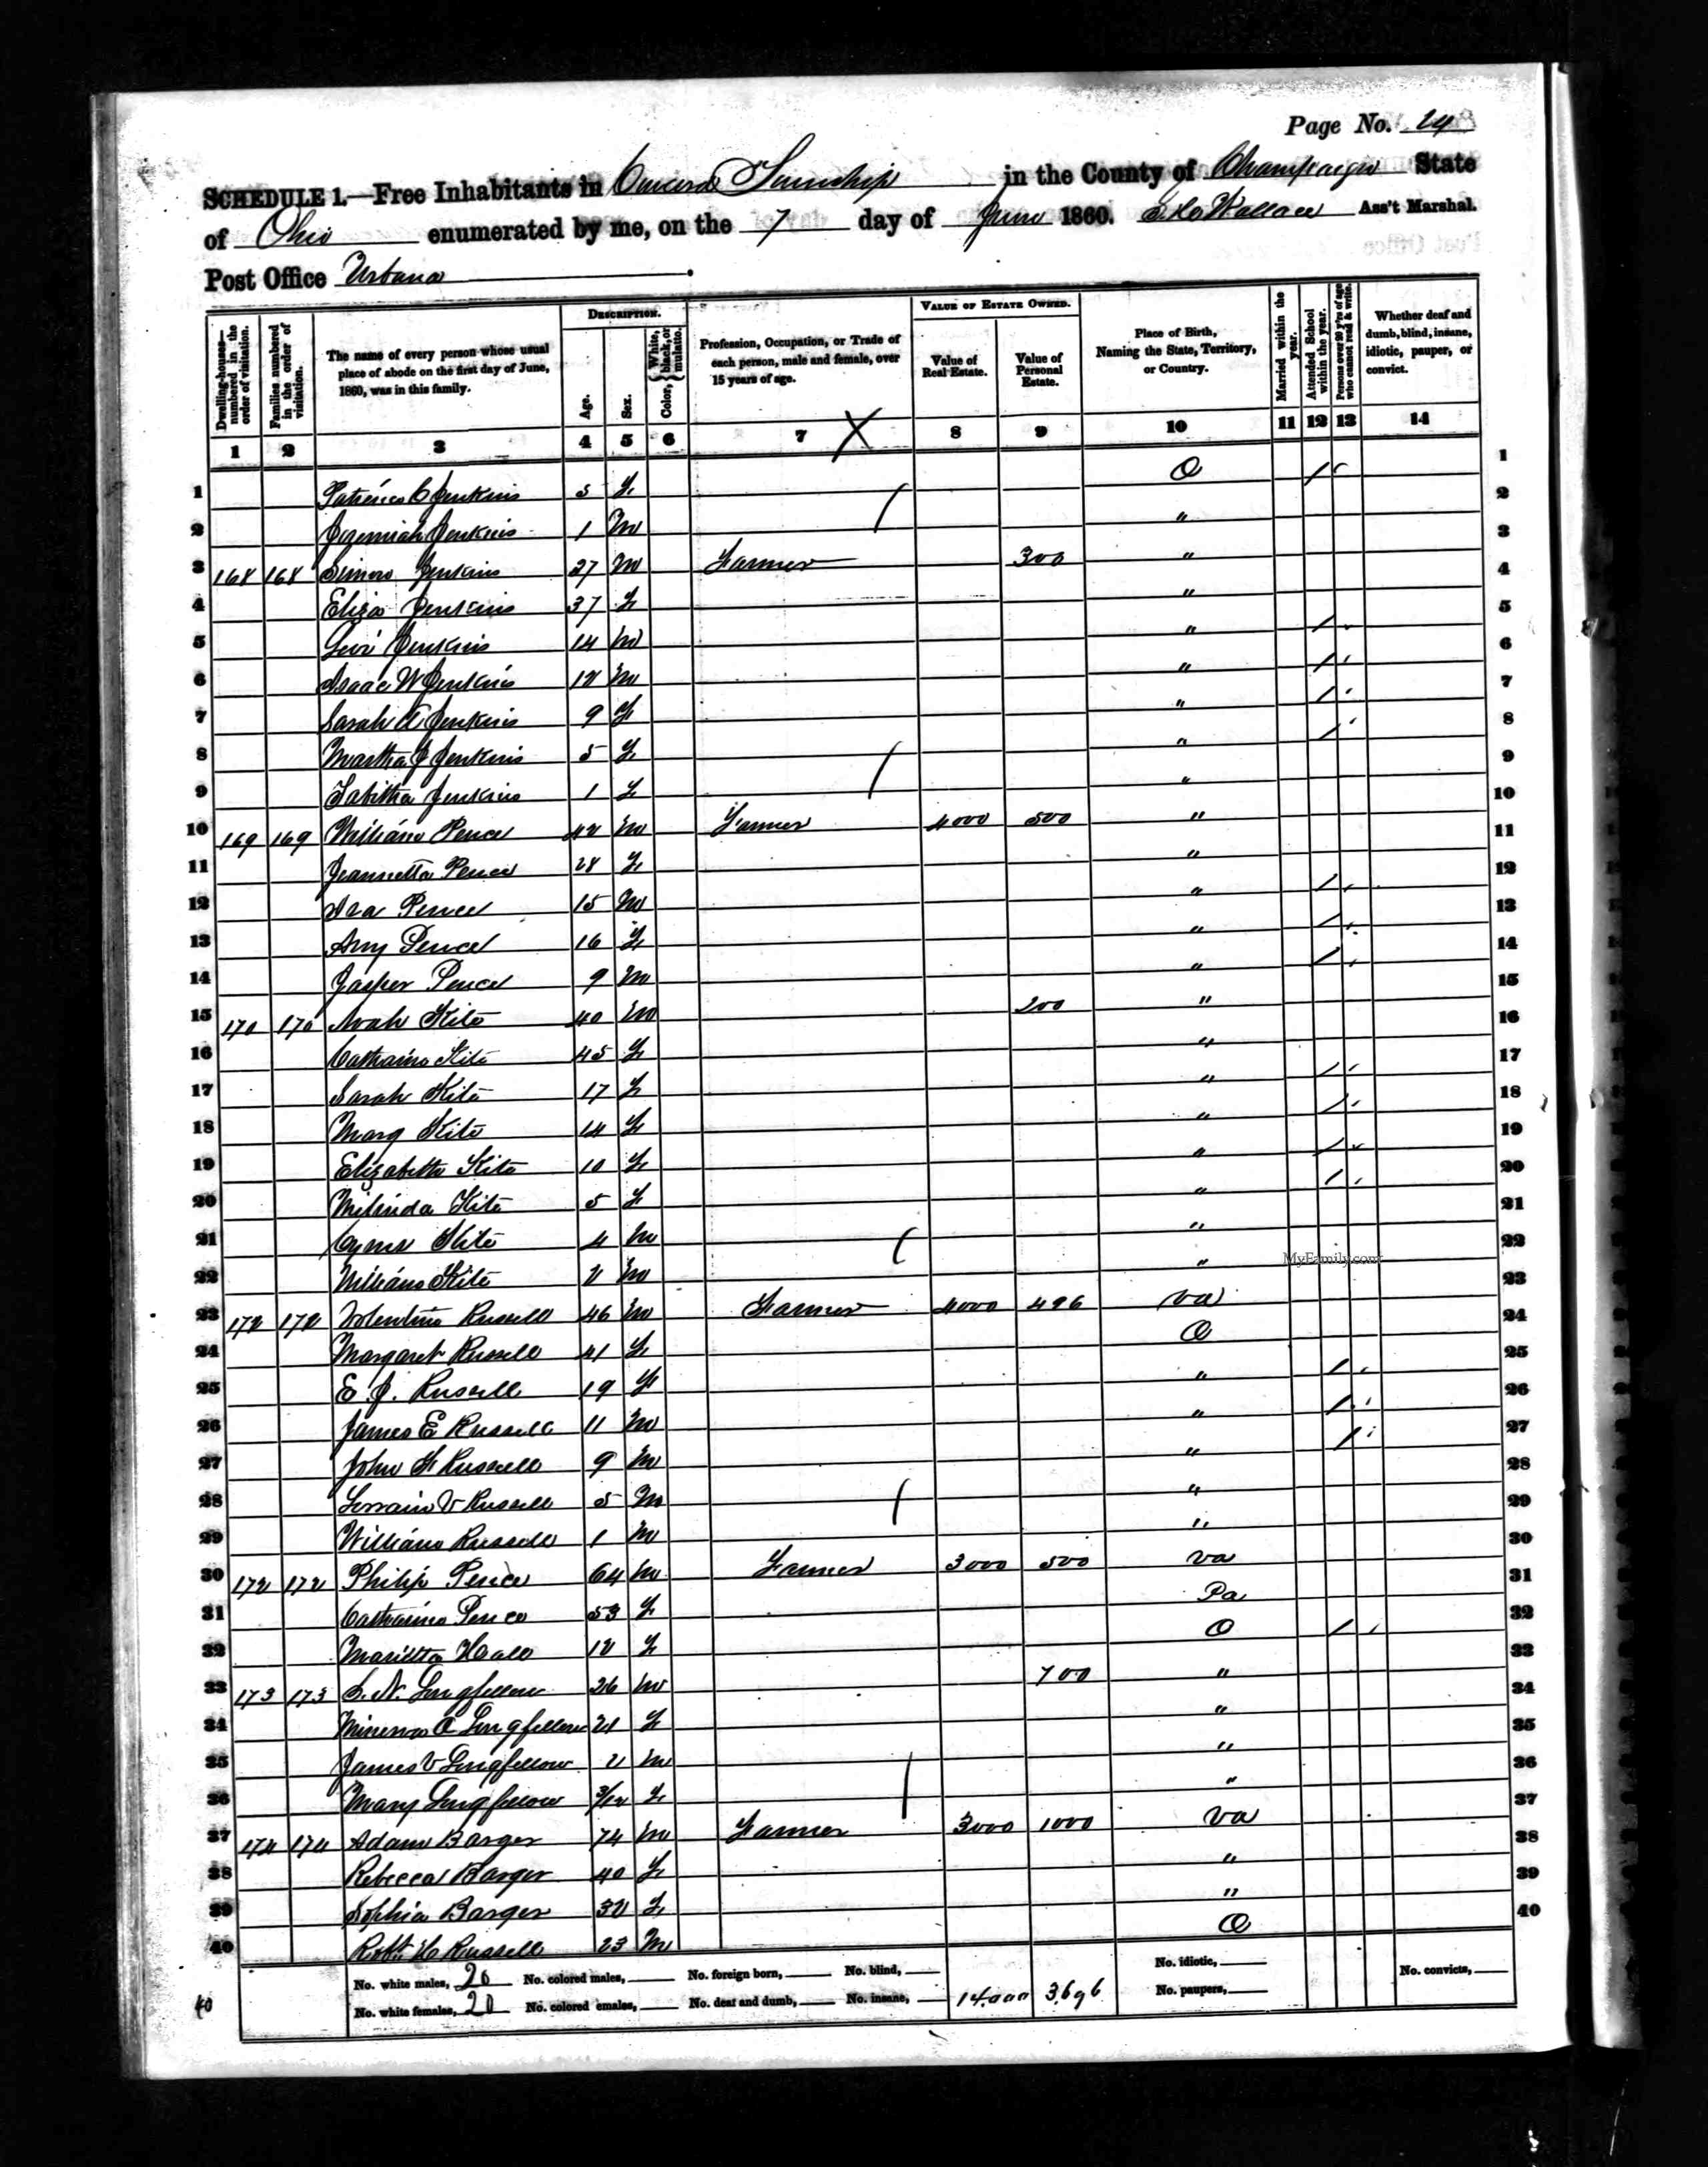 Page No. 24
SCHEDULE 1.—Free Inhabitants in Concord Township in the County of Champaign State
of Ohio enumerated by me, on the 7 day of June 1860. Wallace Ass't Marshal.
Post Office Urbana
Dwelling-houses—numbered in the order of visitation.
Families numbered in the order of visitation.
The name of every person whose usual place of abode on the first day of June, 1860, was in this family.
DESCRIPTION.
Age.
Sex.
Color, White, black, or mulatto.
Profession, Occupation, or Trade of each person, male and female, over 15 years of age.
VALUE OF ESTATE OWNED.
Value of Real Estate.
Value of Personal Estate.
Place of Birth, Naming the State, Territory, or Country.
Married within the year.
Attended School within the year.
Persons over 20 y'rs of age who cannot read & write.
Whether deaf and dumb, blind, insane, idiotic, pauper, or convict.
1 2 3 4 5 6 7 X 8 9 10 11 12 13 14
1 C Jenkins 5 f O / 1
2 Jeremiah Jenkins 1 m " 2
3 168 168 Simon Jenkins 27 m Farmer 300 " 3
4 Eliza Jenkins 37 f " 4
5 Levi Jenkins 14 m " / 5
6 Isaac W Jenkins 12 m " / 6
7 Sarah A Jenkins 9 f " / 7
8 Martha J Jenkins 5 f " / 8
9 Tabitha Jenkins 1 f " 9
10 169 169 William Pence 42 m Farmer 4000 500 " 10
11 Jeannetta Pence 28 f " 11
12 Asa Pence 15 m " / 12
13 Amy Pence 16 f " / 13
14 Jasper Pence 9 m " / 14
15 170 170 Noah Kite 40 m 200 " 15
16 Catharine Kite 45 f " 16
17 Sarah Kite 17 f " / 17
18 Mary Kite 14 f " / 18
19 Elizabeth Kite 10 f " / 19
20 Milinda Kite 5 f " / 20
21 Cyrus Kite 4 m " 21
22 William Kite 2 m " 22
MyFamily.com
23 172 172 Volentine Russell 46 m Farmer 4000 496 Va 23
24 Margaret Russell 41 f O 24
25 E J. Russell 19 f " / 25
26 James E Russell 11 m " / 26
27 John F Russell 9 m " / 27
28 V Russell 5 m " 28
29 William Russell 1 m " 29
30 172 172 Philip Pence 64 m Farmer 3000 500 Va 30
31 Catharine Pence 53 f Pa 31
32 Marietta Hall 12 f O / 32
33 173 173 S. N. Longfellow 26 m 700 " 33
34 Minerva A Longfellow 21 f " 34
35 James V Longfellow 2 m " 35
36 Mary Longfellow 3/12 f " 36
37 174 174 Adam Barger 74 m Farmer 3000 1000 Va 37
38 Rebecca Barger 40 f " 38
39 Sophia Barger 32 f " 39
40 Robt H Russell 23 m O 40
No. white males, 20 No. colored males, No. foreign born, No. blind, No. idiotic, No. convicts,
40 No. white females, 20 No. colored emales, No. deaf and dumb, No. insane, 14,000 3,696 No. paupers,